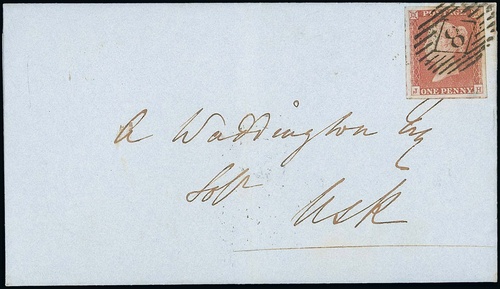 POSTAGE
8
J R
ONE PENNY
A Waddington Esq
Solr
Usk